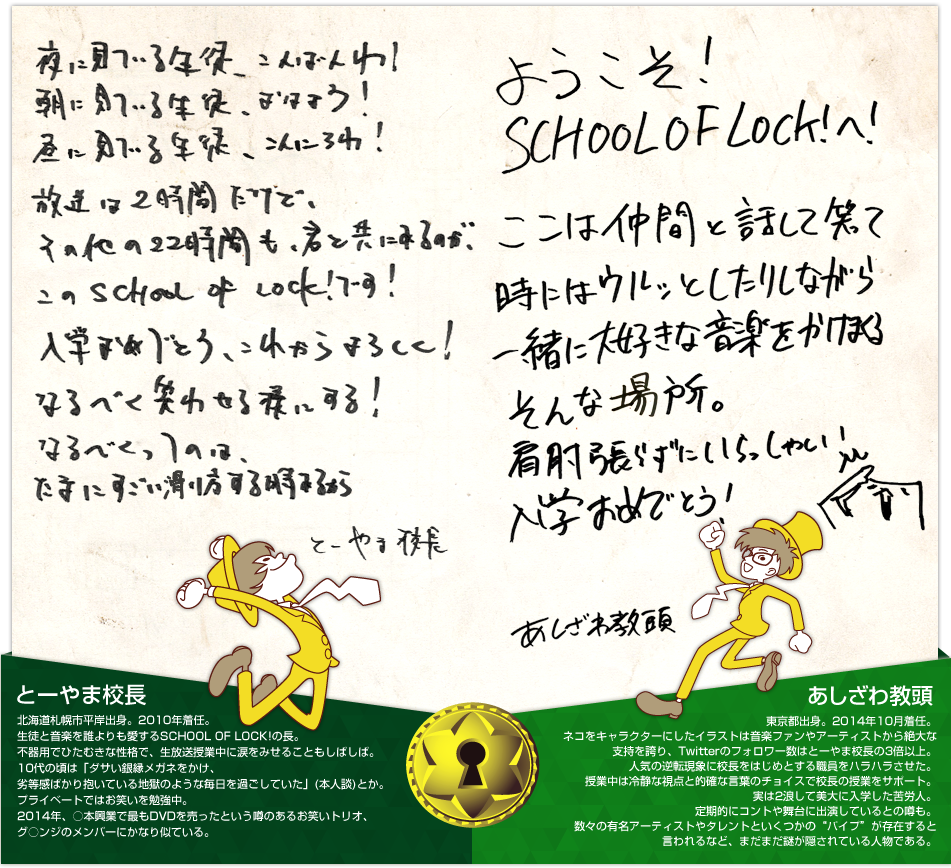 夜に見ている生徒、こんばんわ!
朝に見ている生徒、おはよう!
昼に見ている生徒、こんにちわ!
放送は2時間だけで、
その他の22時間も、君と共に来るのが、
このSCHOOL OF LOCK!です!
入学おめでとう、これからよろしく!
なるべく笑わせる様にする!
なるべくっつのは、
たまにすごい滑り方する時あるから
とーやま校長
ようこそ!
SCHOOL OF LOCK!へ!
ここは仲間と話して笑て
時にはウルッとしたりしながら
一緒に大好きな音楽をかけまくる
そんな場所。
肩肘張らずにいらっしゃい
入学おめでとう!
あしざわ教頭
とーやま校長
北海道札幌市平岸出身。2010年着任。
生徒と音楽を誰よりも愛するSCHOOL OF LOCK!の長。
不器用でひたむきな性格で、生放送授業中に涙をみせることもしばしば。
10代の頃は「ダサい銀縁メガネをかけ、
劣等感ばかり抱いている地獄のような毎日を過ごしていた」(本人談)とか。
プライベートではお笑いを勉強中。
2014年、○本興業で最もDVDを売ったという噂のあるお笑いトリオ、
グ○ンジのメンバーにかなり似ている。
あしざわ教頭
東京都出身。2014年10月着任。
ネコをキャラクターにしたイラストは音楽ファンやアーティストから絶大な
支持を誇り、Twitterのフォロワー数はとーやま校長の3倍以上。
人気の逆転現象に校長をはじめとする職員をハラハラさせた。
授業中は冷静な視点と的確な言葉のチョイスで校長の授業をサポート。
実は2浪して美大に入学した苦労人。
定期的にコントや舞台に出演しているとの噂も。
数々の有名アーティストやタレントといくつかの“パイプ”が存在すると
言われるなど、まだまだ謎が隠されている人物である。